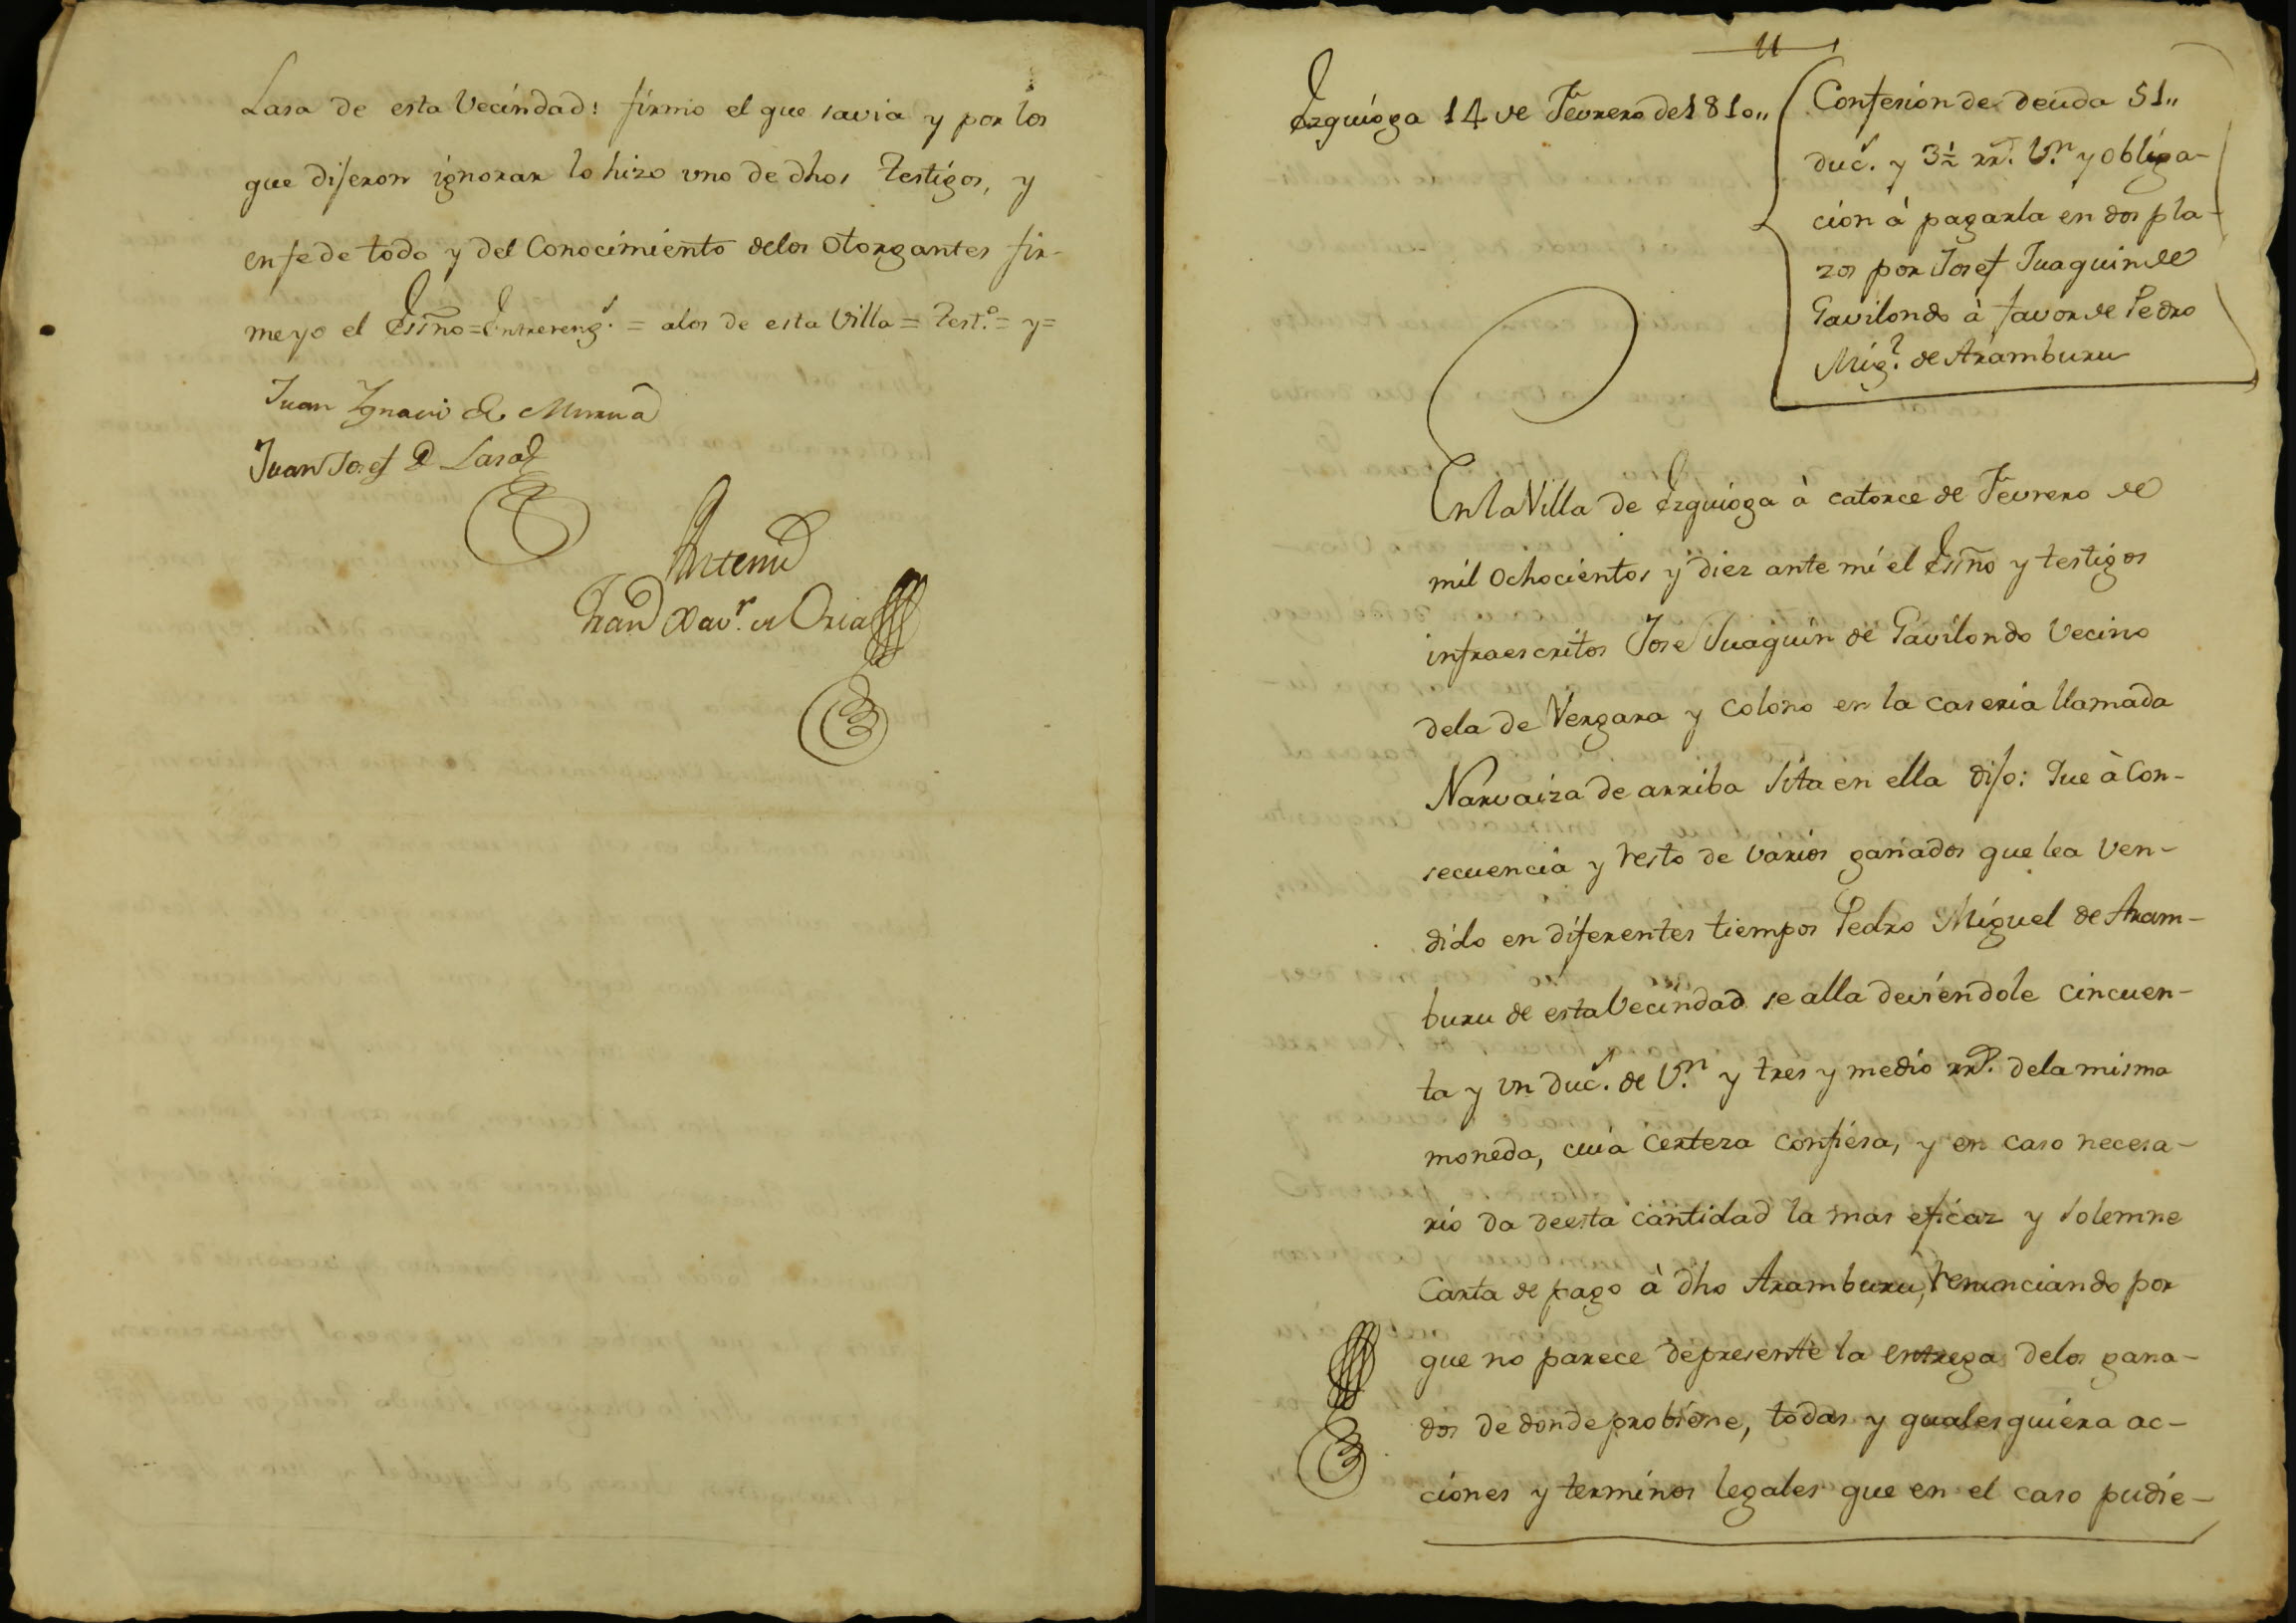 Lasa de esta Vecindad: firmo el que savia y por los
que dijeron ignorar lo hizo uno de dhos Testigos, y
en fe de todo y del Conocimiento delos Otorgantes fir-
me yo el Essno = Entrereng.s = alos de esta Villa = Test.o = y =
Juan Ygnacio de Murua
Juan Josef de Lasa
Antemi
Fran.co Xav.r de Oria
11
Ezquioga 14 de Fevrero de 1810,,
Confesion de deuda 51,,
duc.s y 3 1/2 rr.s V.n y obliga-
cion à pagarla en dos pla-
zos por Josef Juaquin de
Gavilondo à favor de Pedro
Mig.l de Aramburu
En la Villa de Ezquioga à catorce de Fevrero de
mil ochocientos y diez ante mi el Essno y testigos
infraescritos Jose Juaquin de Gavilondo Vecino
dela de Vergara y colono en la caseria llamada
Narvaiza de arriba sita en ella dijo: Que à Con-
secuencia y resto de varios ganados que lea ven-
dido en diferentes tiempos Pedro Miguel de Aram-
buru de esta Vecindad se alla deviendole cincuen-
ta y un duc.s de V.n y tres y medio rr.s dela misma
moneda, cuia certeza confiesa, y en caso necesa-
rio da deesta cantidad la mas eficaz y solemne
Carta de pago à dho Aramburu, renunciando por
que no parece depresente la entrega delos gana-
dos de donde probiene, todas y qualesquiera ac-
ciones y terminos legales que en el caso pudie-